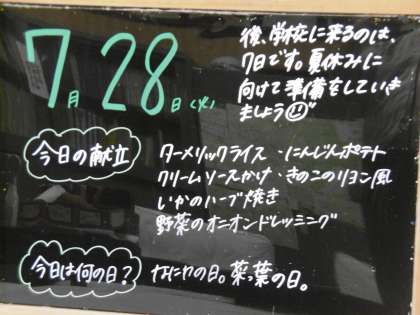 7月28日(火)
後、学校に来るのは、
7日です。夏休みに
向けて準備をしていき
ましょう
今日の献立
ターメリックライス・にんじんポテト
クリームソースかけ・きのこのリヨン風
いかのハーブ焼き
野菜のオニオンドレッシング
今日は何の日?
なにわの日。菜っ葉の日。